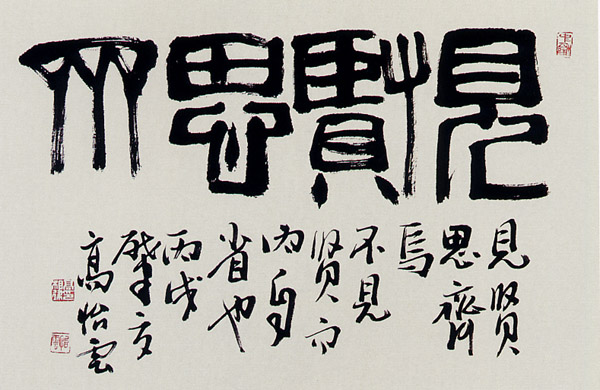 見賢思齊
見賢
思齊
焉
不見
賢而
內自
省也
丙戌
高怡雲